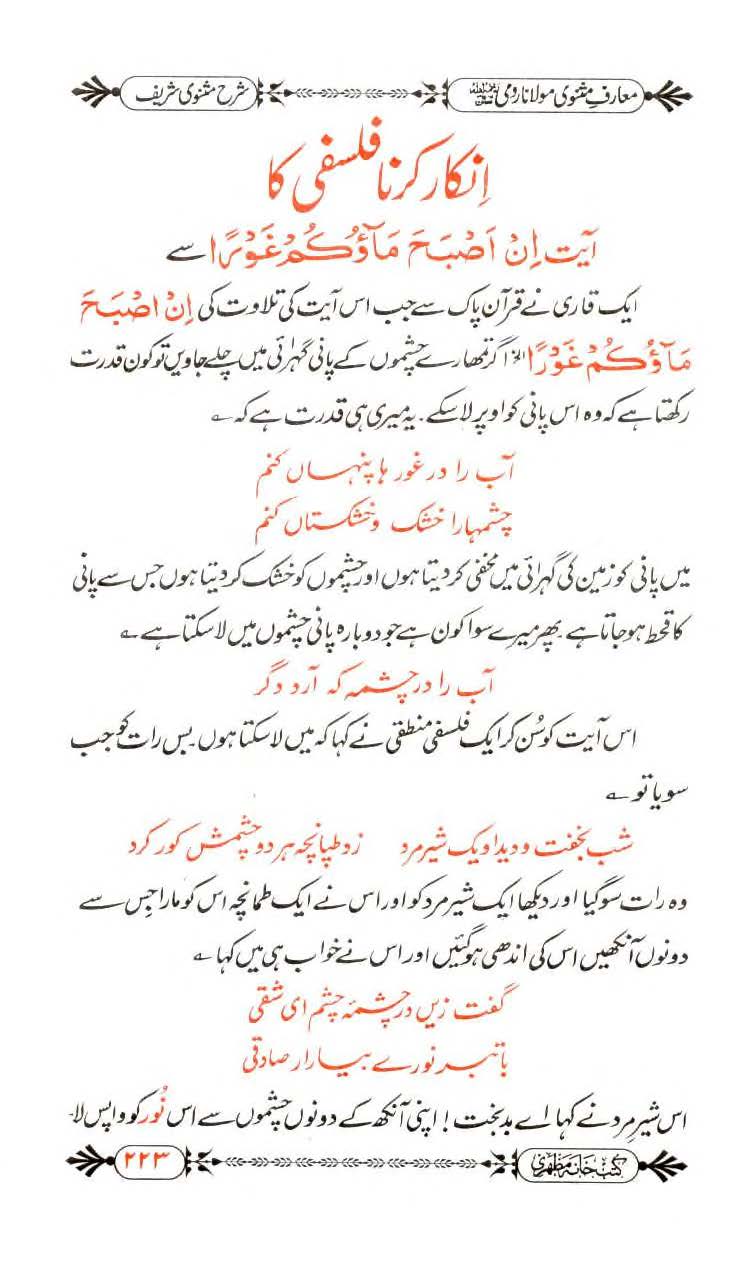 معارفِ مثنوی مولانا رومی شرح مثنوی شریف
اِنکار کرنا فلسفی کا
آیت اِنْ اَصْبَحَ مَآؤُكُمْ غَوْرًا سے
ایک قاری نے قرآن پاک سے جب اس آیت کی تلاوت کی اِنْ اَصْبَحَ
مَآؤُكُمْ غَوْرًا الخ اگر تمھارے چشموں کے پانی گہرائی میں چلے جاویں تو کون قدرت
رکھتا ہے کہ وہ اس پانی کو اوپر لا سکے۔ یہ میری ہی قدرت ہے کہ ؎
آب را در غور ہا پنہاں کنم
چشمہا را خشک و خشکستاں کنم
میں پانی کو زمین کی گہرائی میں مخفی کر دیتا ہوں اور چشموں کو خشک کر دیتا ہوں جس سے پانی
کا قحط ہو جاتا ہے۔ پھر میرے سوا کون ہے جو دوبارہ پانی چشموں میں لا سکتا ہے۔ ؎
آب را در چشمہ کہ آرد دگر
اس آیت کو سُن کر ایک فلسفی منطقی نے کہا کہ میں لا سکتا ہوں۔ بس رات کو جب
سویا تو ؎
شب بخفت و دید او یک شیر مرد زد طپانچہ ہر دو چشمش کور کرد
وہ رات سو گیا اور دیکھا ایک شیر مرد کو اور اس نے ایک طمانچہ اس کو مارا جس سے
دونوں آنکھیں اس کی اندھی ہو گئیں اور اس نے خواب ہی میں کہا ؎
گفت زیں در چشمۂ چشم ای شقی
با تبر نورے بیار ار صادقی
اس شیرِ مرد نے کہا اے بدبخت! اپنی آنکھ کے دونوں چشموں سے اس نُور کو واپس لا۔
کتب خانہ مظہری ۲۲۳